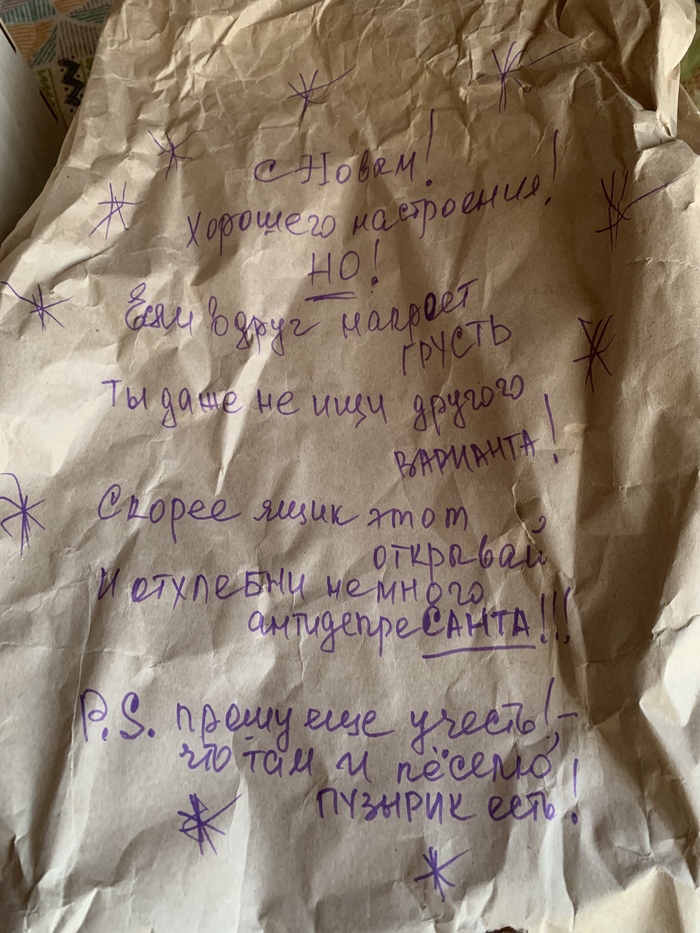 С Новым!
Хорошего настроения!
НО!
Если вдруг накроет
ГРУСТЬ
Ты даже не ищи другого
ВАРИАНТА!
Скорее ящик этот
открывай,
И отхлебни немного
антидепреСАНТА!!!
P.S. прошу еще учесть! –
что там и пёселю
ПУЗЫРИК есть!